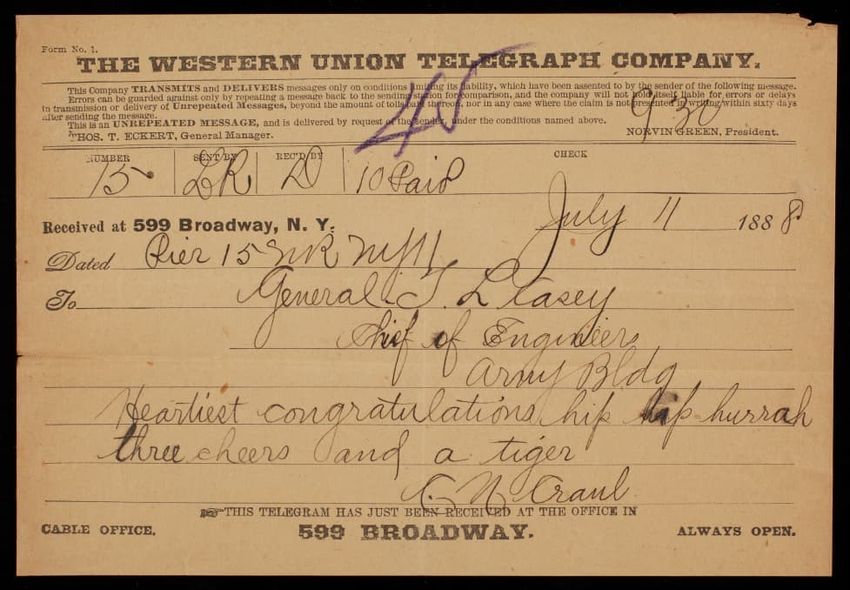 Form No. 1.
THE WESTERN UNION TELEGRAPH COMPANY.
This Company TRANSMITS and DELIVERS messages only on conditions limiting its liability, which have been assented to by the sender of the following message.
Errors can be guarded against only by repeating a message back to the sending station for comparison, and the company will not hold itself liable for errors or delays
in transmission or delivery of Unrepeated Messages, beyond the amount of tolls paid thereon, nor in any case where the claim is not presented in writing within sixty days
after sending the message.
This is an UNREPEATED MESSAGE, and is delivered by request of the sender, under the conditions named above.
THOS. T. ECKERT, General Manager. NORVIN GREEN, President.
930
NUMBER SENT BY REC'D BY CHECK
15 D 10 Paid
Received at 599 Broadway, N. Y. July 11 1888
Dated Pier 15 NR NY 11
To General T L Casey
Chief of Engineers
Army Bldg
Heartiest congratulations hip hip hurrah
three cheers and a tiger
C N
THIS TELEGRAM HAS JUST BEEN RECEIVED AT THE OFFICE IN
CABLE OFFICE. 599 BROADWAY. ALWAYS OPEN.